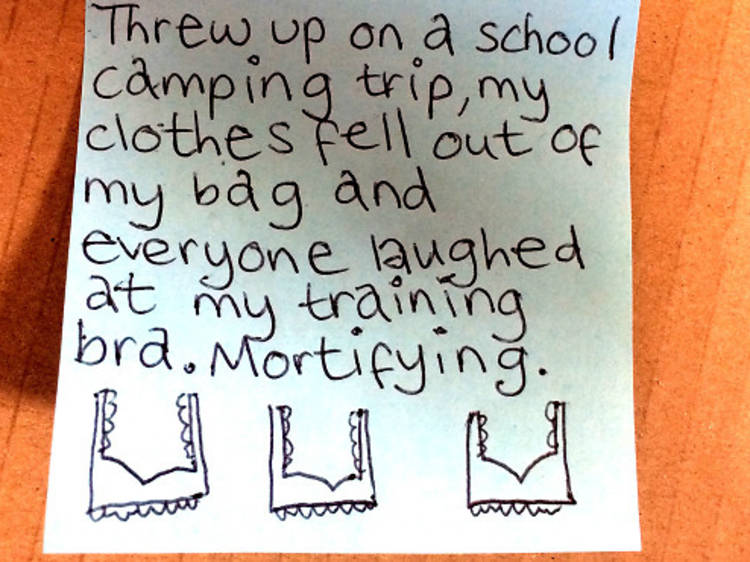 Threw up on a school
camping trip, my
clothes fell out of
my bag and
everyone laughed
at my training
bra. Mortifying.